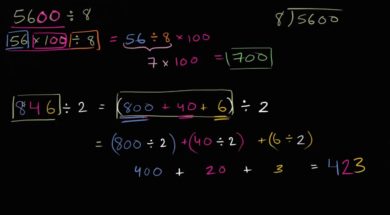 5600 ÷ 8
8)5600
56 × 100 ÷ 8 = 56 ÷ 8 × 100
7 × 100 = 700
846 ÷ 2 = (800 + 40 + 6) ÷ 2
= (800 ÷ 2) + (40 ÷ 2) + (6 ÷ 2)
400 + 20 + 3 = 423